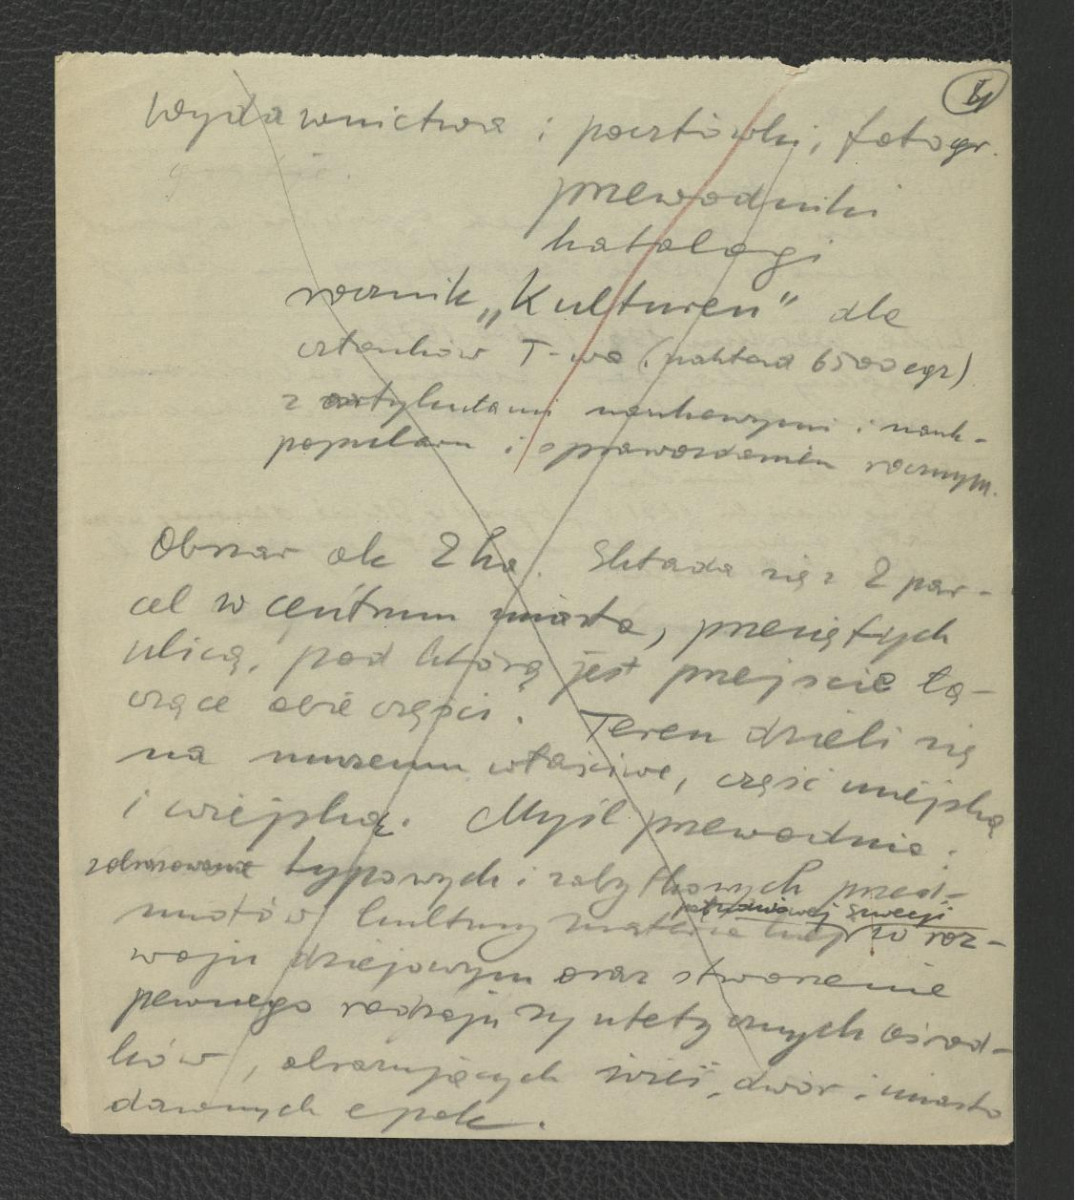 Wydawnictwa i pocztówki, fotogr.
przewodniki
katalogi
rocznik „Kulturen" dla
członków T-wa (nakład 6500 egz)
z artykułami naukowymi i nauk-
popularn i sprawozdaniem rocznym.
Obszar ok 2 ha. Składa się z 2 par-
cel w centrum miasta, przeciętych
ulicą, pod którą jest przejście łą-
czące obie części. Teren dzieli się
na muzeum właściwe, część miejską
i wiejską. Myśl przewodnia:
zobrazowanie typowych i zabytkowych przed-
południowej Szwecji
miotów kultury materialnej w roz-
woju dziejowym oraz stworzenie
pewnego rodzaju syntetycznych ośrod-
ków, obrazujących wieś, dwór i miasto
dawnych epok.